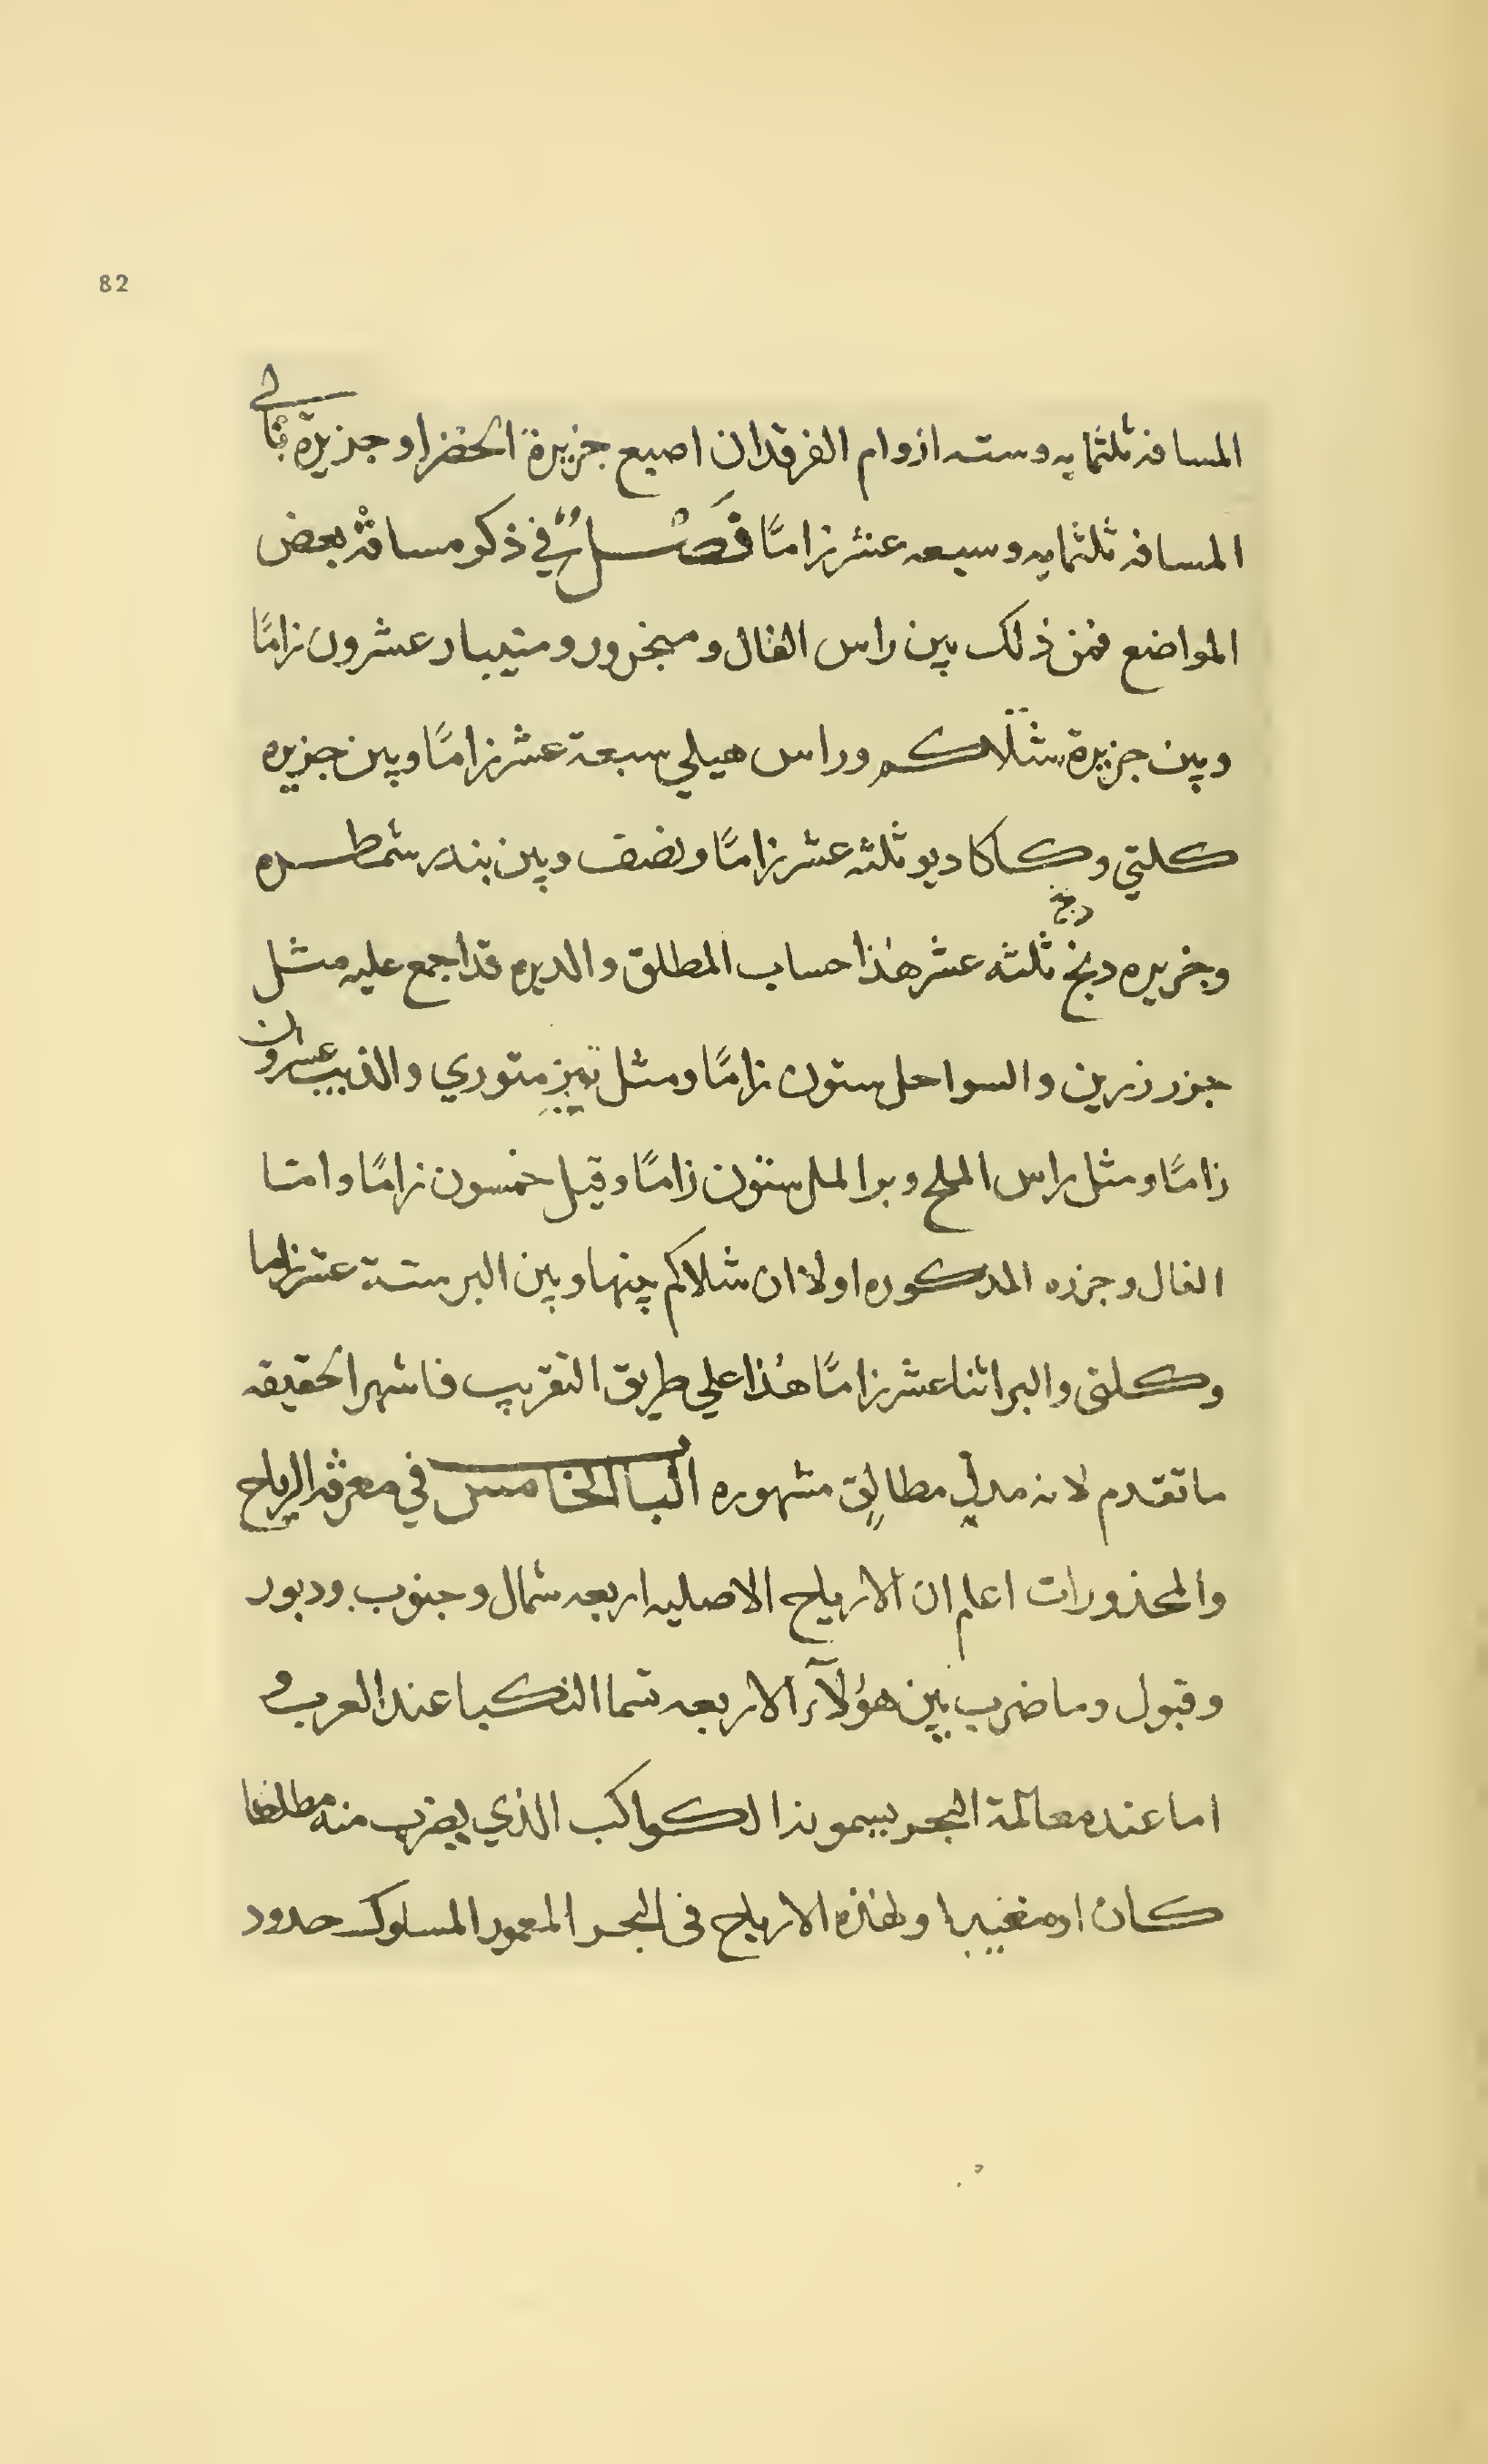 82
المسافه ثلثمايه وسته ازوام الفرقدان اصبع جزيرة الخضرا وجزيرة بالي
المسافه ثلثمايه وسبعه عشر زامًا فَصْلٌ في ذكر مسافة بعض
المواضع فمن ذلك بين راس الفال ومنجزور ومتيبار عشرون زامًا
وبين جزيرة شلاكم وراس هيلي سبعة عشر زامًا وبين جزيره
كلتي وكاكاديو ثلثه عشر زامًا ونصف وبين بندر شمطره
دبخ
وجزيره دبخ ثلثه عشر هذا حساب المطلق والديره قد اجمع عليه مثل
جزر زرين والسواحل ستون زامًا ومثل بين متوري والذيب عشرون
زامًا ومثل راس الملح وبر المل ستون زامًا وقيل خمسون زامًا وامّا
الفال وجزره المذكوره اولا ان شلاكم بينها وبين البر ستة عشر زاما
وكلتى والبر اثنا عشر زامًا هذا علي طريق التقريب فاشهر الحقيقه
ما تقدم لانه مدلي مطالق مشهوره الباب الخامس في معرفة الرياح
والمحذورات اعلم ان الارياح الاصليه اربعه شمال وجنوب ودبور
وقبول وما ضرب بين هؤلآء الاربعه تسما النكبا عند العرب و
اما عند معالمة البحر يسمو بذا الكواكب الذي يضرب منه مطلعا
كان او مغيبا ولهذه الارياح فى البحر المعمور المسلوك حدود